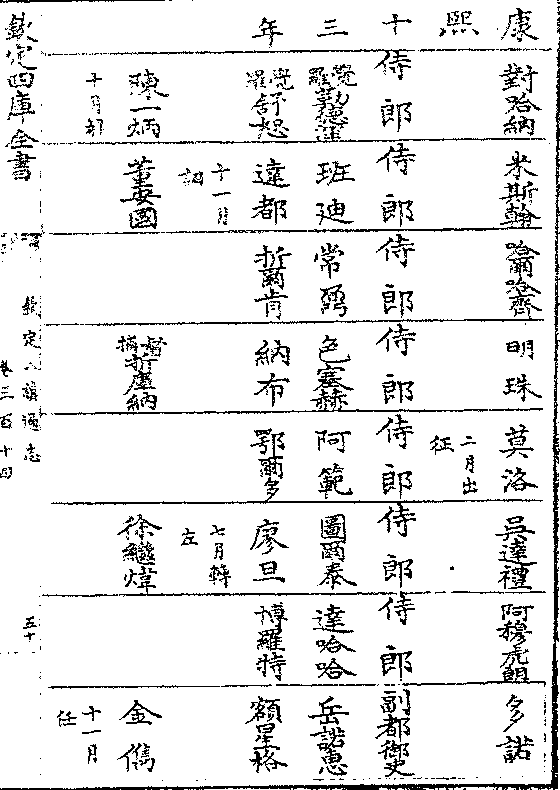 康 對哈納 米斯翰 哈爾哈齊 明珠 莫洛 吳達禮 阿穆 多諾
熙 二月出征
十 侍郎 侍郎 侍郎 侍郎 侍郎 侍郎 侍郎 副都御史
三 覺羅勒德洪 班廸 常鼐 色塞赫 阿範 圖爾泰 達哈哈 岳諾惠
年 覺羅舒恕 達都 折爾肯 納布 鄂爾多 廖旦 博羅特 額星格
十一月調 七月轉左
陳一炳 董安國 督捕折庫納 徐繼煒 金儁
十月 十一月任
欽定四庫全書
欽定八旗通志 卷三百十四 五十